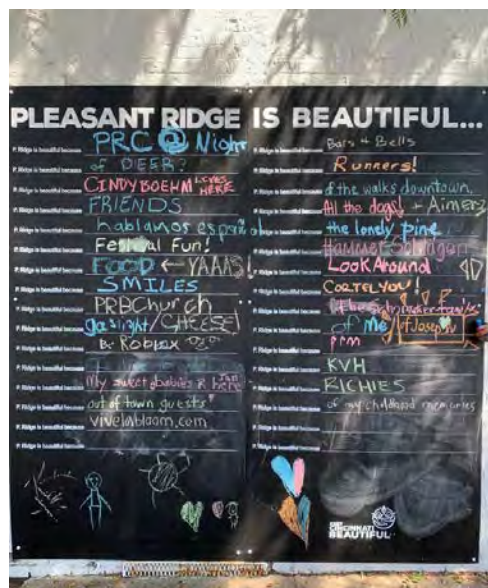 PLEASANT RIDGE IS BEAUTIFUL...
P. Ridge is beautiful because PRC @ Night
P. Ridge is beautiful because of DEER?
P. Ridge is beautiful because CINDY BOEHM LIVES HERE
P. Ridge is beautiful because FRIENDS
P. Ridge is beautiful because hablamos español
P. Ridge is beautiful because Festival Fun!
P. Ridge is beautiful because FOOD ← YAAAS!
P. Ridge is beautiful because SMILES
P. Ridge is beautiful because PRBChurch
P. Ridge is beautiful because gaslight/CHEESE
P. Ridge is beautiful because Roblox
P. Ridge is beautiful because
P. Ridge is beautiful because My sweet babies R here
P. Ridge is beautiful because out of town guests
P. Ridge is beautiful because vivelablaam.com
P. Ridge is beautiful because Bars + Bells
P. Ridge is beautiful because Runners!
P. Ridge is beautiful because of the walks downtown.
P. Ridge is beautiful because All the dogs! +
P. Ridge is beautiful because the lonely pine
P. Ridge is beautiful because
P. Ridge is beautiful because Look Around
P. Ridge is beautiful because CORTELYOU!
P. Ridge is beautiful because The
P. Ridge is beautiful because of Me Joseph
P. Ridge is beautiful because prm
P. Ridge is beautiful because KVH
P. Ridge is beautiful because RICHIES
P. Ridge is beautiful because of my childhood memories
P. Ridge is beautiful because
P. Ridge is beautiful because
KEEP CINCINNATI BEAUTIFUL